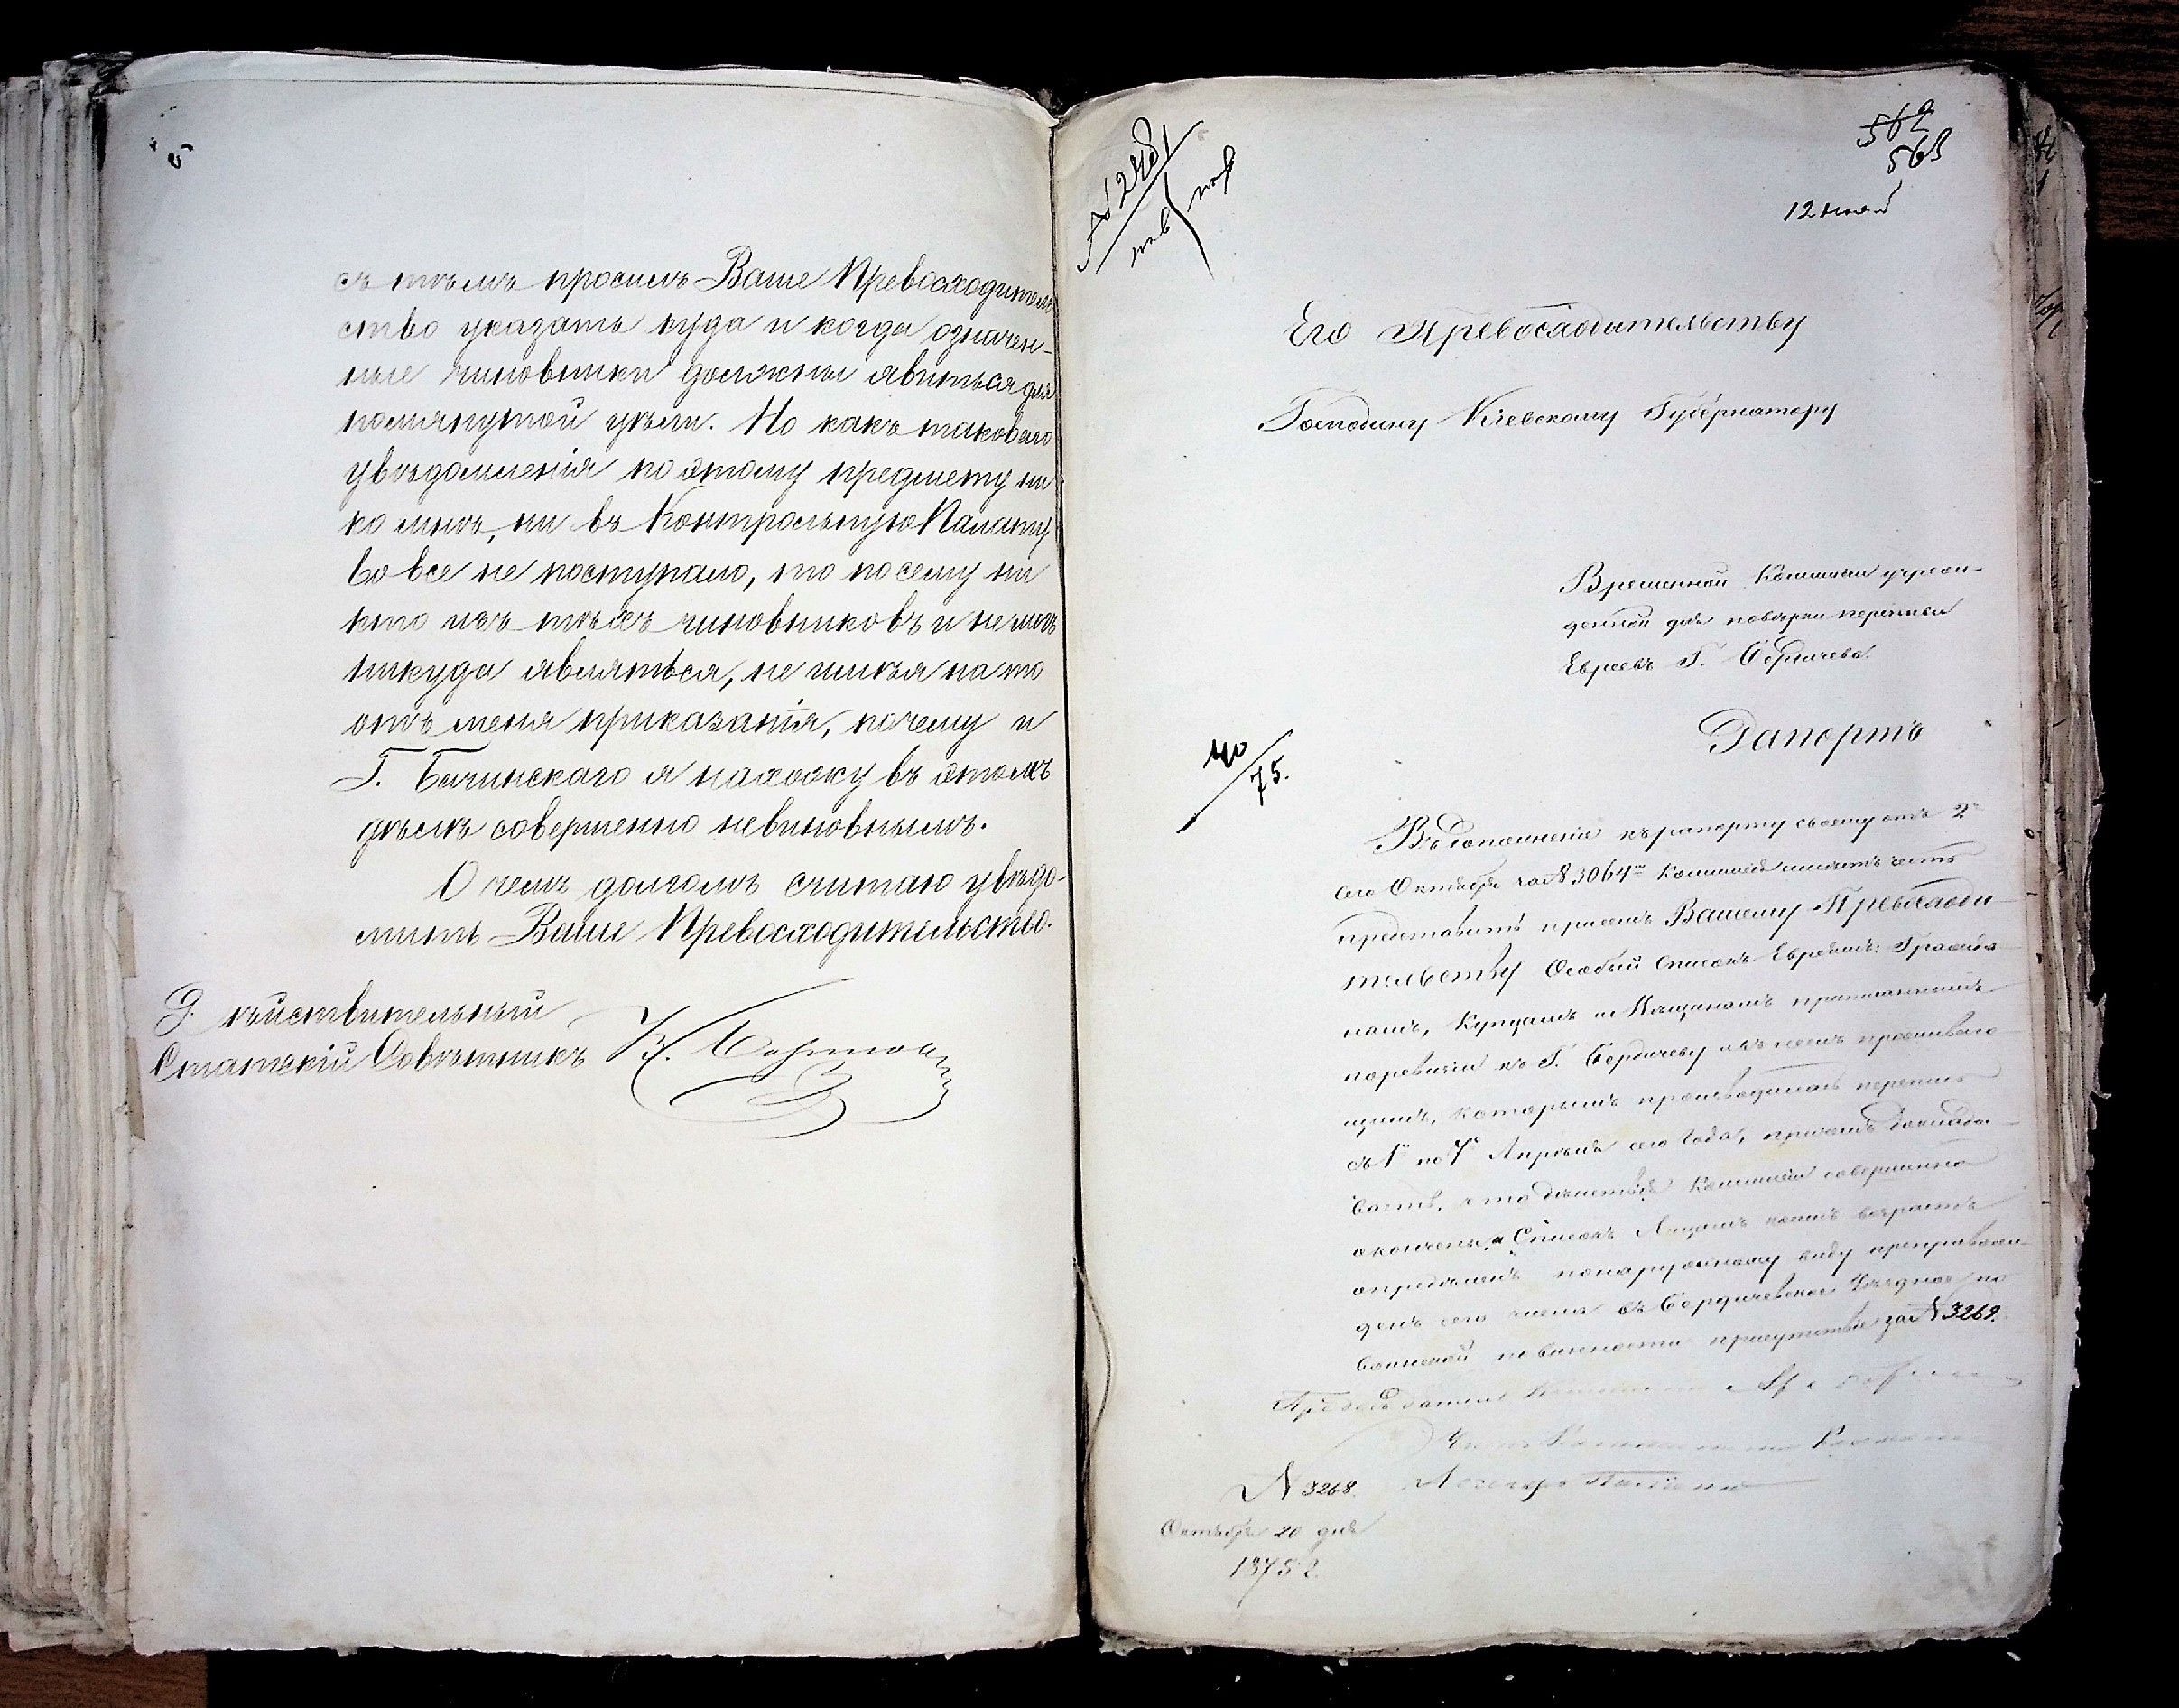 съ тѣмъ просилъ Ваше Превосходитель
ство указать куда и когда означен-
ные чиновники должны явиться для
помянутой цѣли. Но какъ таковаго
увѣдомленія по этому предмету ни
ко мнѣ, ни въ Контрольную Палату
вовсе не поступало, то посему ни
кто изъ тѣхъ чиновниковъ и не могъ
никуда являться, не имѣя на то
отъ меня приказанія, почему и
Г. Бычинскаго я нахожу въ этомъ
дѣлѣ совершенно невиновнымъ.
О чемъ долгомъ считаю увѣдо-
мить Ваше Превосходительство.
Дѣйствительный
Статскій Совѣтникъ
562
563
12 июня
Его Превосходительству
Господину Кіевскому Губернатору
Временной Коммисіи учреж-
денной для повѣрки переписи
Евреевъ Г. Бердичева.
Рапортъ
40/75.
Въ дополненіе къ рапорту своему отъ 2го
сего Октября за № 3064мъ Коммисія имѣетъ честь
представить при семъ Вашему Превосходи-
тельству Особый Списокъ Евреямъ: Гражда-
намъ, Купцамъ и Мѣщанамъ приписаннымъ
по ревизіи къ Г. Бердичеву и въ немъ проживаю-
щимъ, которымъ производилась перепись
съ 1го по 7е Апрѣля сего года, причемъ доклады-
ваетъ, что дѣйствія Коммисіи совершенно
окончены, а Списокъ лицамъ коимъ возрастъ
опредѣленъ по наружному виду препровож-
денъ сего числа въ Бердичевское Уѣздное по
воинской повинности присутствіе за № 3269.
Предсѣдатель Коммисіи
№ 3268.
Октября 20 дня
1875 г.